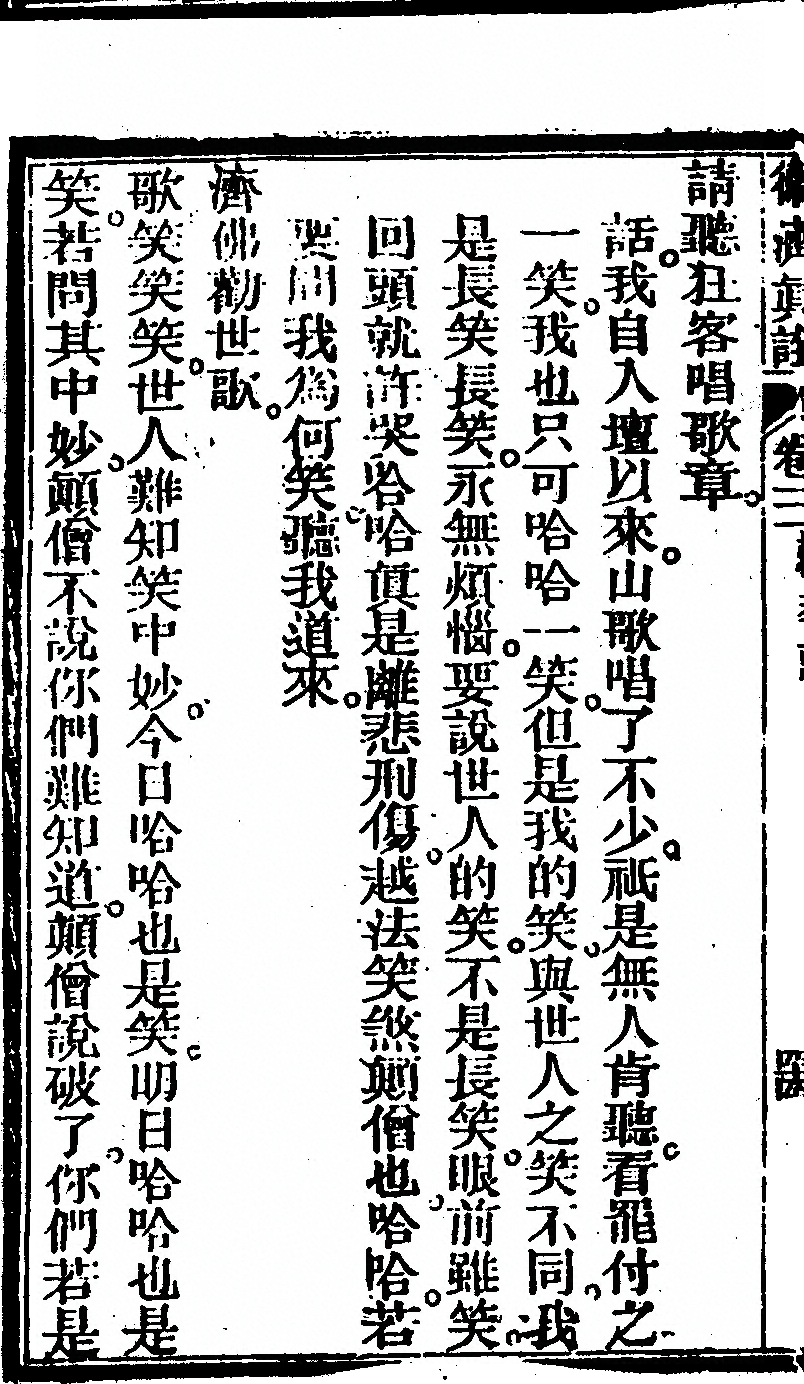 請聽狂客唱歌章。
話。我自入壇以來。山歌唱了不少。祇是無人肯聽。看罷付之
一笑。我也只可哈哈一笑。但是我的笑。與世人之笑不同。我
是長笑長笑。永無煩惱。要說世人的笑。不是長笑。眼前雖笑。
回頭就許哭。哈哈眞是離悲刑傷。越法笑煞顛僧也。哈哈。若
要問我為何笑。聽我道來。
濟佛勸世歌。
歌笑笑笑。世人難知笑中妙。今日哈哈也是笑。明日哈哈也是
笑。若問其中妙。顛僧不說你們難知道。顛僧說破了。你們若是